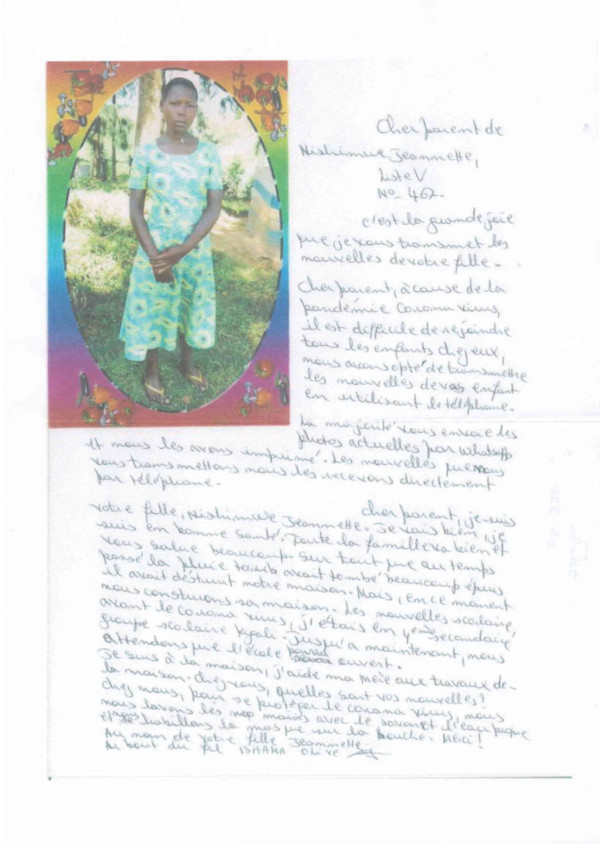 Cher parent de
Nishimwe Jeannette,
Liste V
No- 462-
c'est la grande joie
que je vous transmet les
nouvelles de votre fille-
Cher parent, à cause de la
pandémie Corona virus,
il est difficile de rejoindre
tous les enfants chez eux,
nous avons opté de transmettre
les nouvelles de vos enfant
en utilisant le téléphone-
La majorité vous envoie les
photos actuelles par WhatsApp
et nous les avons imprimé. Les nouvelles que nous
vous transmettons nous les recevons directement
par téléphone-
cher parent, je suis
votre fille, Nishimwe Jeannette. Je vais bien, je
suis en bonne santé. Toute la famille va bien et
vous salue beaucoup sur tout que au temps
passé la pluie avait tombé beaucoup puis
il avait détruit notre maison. Mais, en ce moment
nous construons sa maison. Les nouvelles scolaire,
avant le corona virus, j'étais en 4 secondaire
groupe scolaire Kigali- Jusqu'à maintenant, nous
attendons que l'école ouvert.
Je suis à la maison, j'aide ma mère aux travaux de-
la maison- chez vous, quelles sont vos nouvelles?
chez nous, pour se protéger le corona virus, nous
nous lavons les nos mains avec le savon et l'eau propre
et nous habillons la masque sur la bouche. Merci!
Au nom de votre fille Jeannette-
Au bout du fil ISHARA Olive